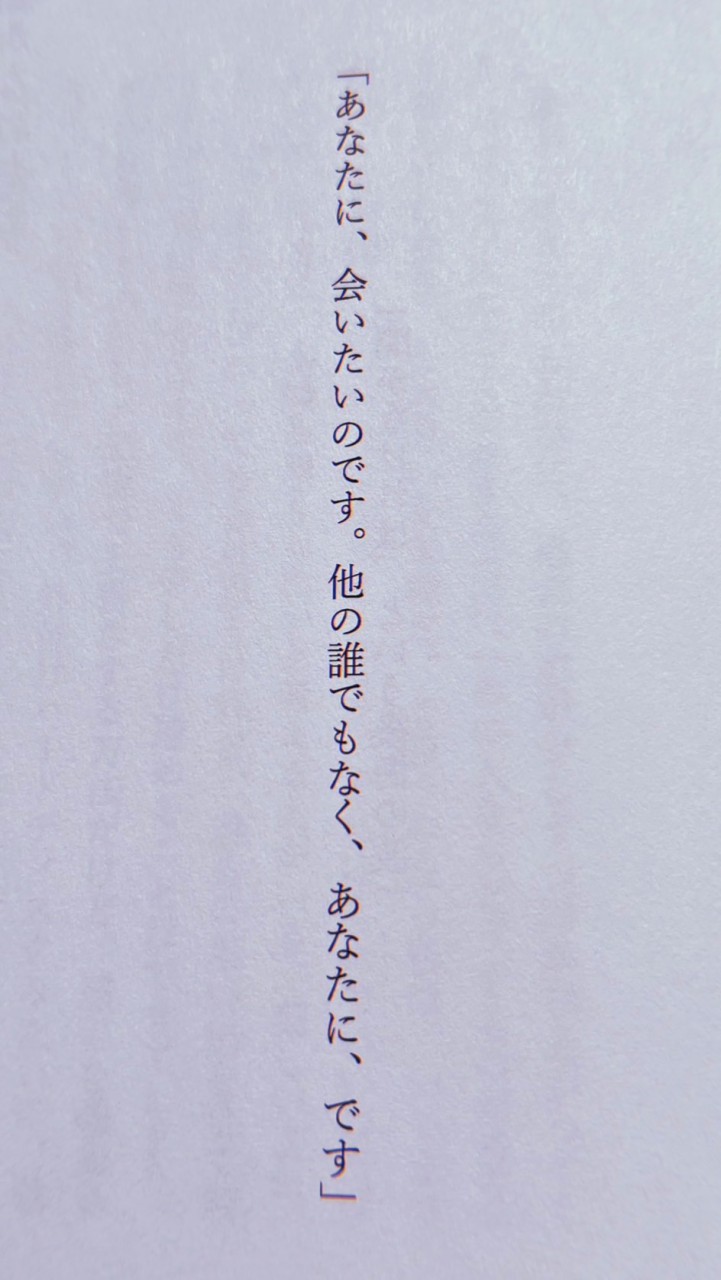 「あなたに、会いたいのです。他の誰でもなく、あなたに、です」